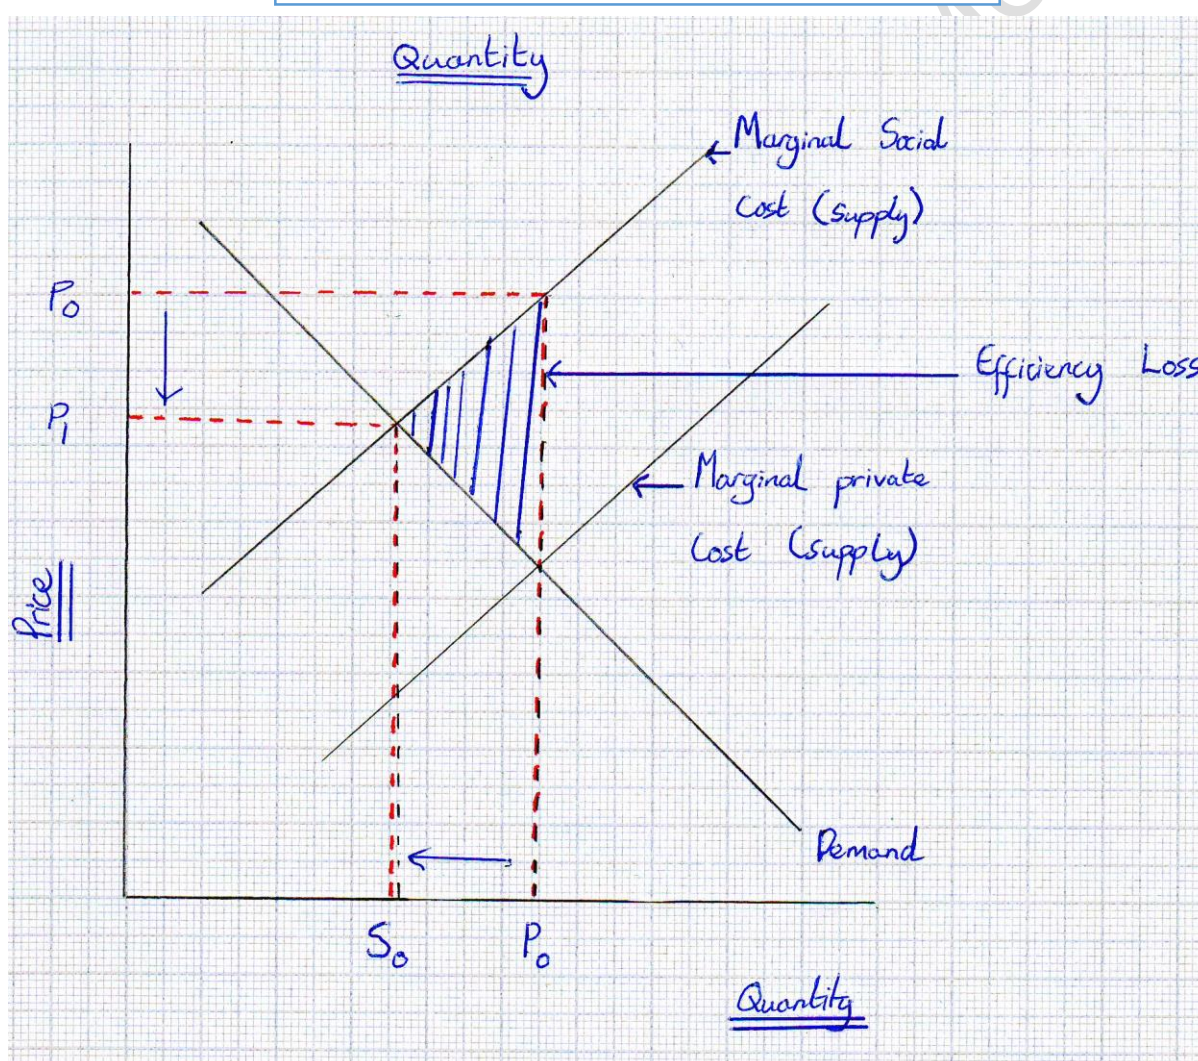 Quantity
Marginal Social
Cost (supply)
P0
Efficiency Loss
P1
Marginal private
Cost (supply)
Price
Demand
S0
P0
Quantity